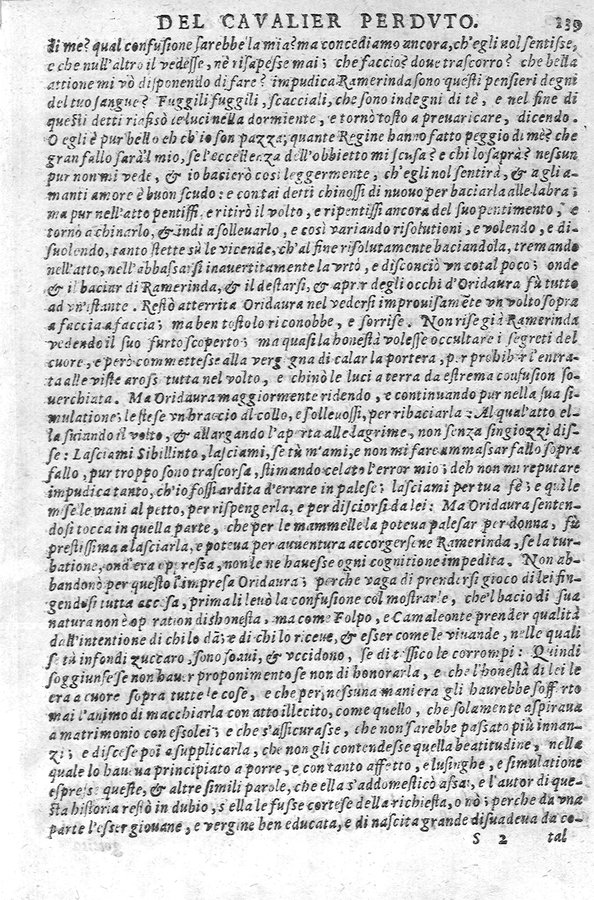 DEL CAVALIER PERDVTO. 239
di me? qual confusione sarebbe la mia? ma concediamo ancora, ch'egli nol sentisse,
e che null'altro il vedesse, nè risapesse mai; che faccio? dove trascorro? che bella
attione mi vò disponendo di fare? impudica Ramerinda sono questi pensieri degni
del tuo sangue? Fuggili fuggili, scacciali, che sono indegni di tè, e nel fine di
questi detti riafisò le luci nella dormiente, e tornò tosto a preuaricare, dicendo.
O egli è pur bello eh ch'io son pazza; quante Regine hanno fatto peggio di me? che
gran fallo sarà l mio, se l'eccellenza dell'obbietto mi scusa? e chi lo saprà? nessun
pur non mi vede, & io bacierò così leggermente, ch'egli nol sentirà, & a gli a-
manti amore è buon scudo: e con tai detti chinossi di nuouo per baciarla alle labra;
ma pur nell'atto pentissi, e ritirò il volto, e ripentissi ancora del suo pentimento, e
tornò a chinarlo, & indi a solleuarlo, e così variando risolutioni, e volendo, e dis-
uolendo, tanto stette sù le vicende, ch'al fine risolutamente baciandola, tremando
nell'atto, nell'abbassarsi inauertitamente la vrtò, e disconciò vn cotal poco; onde
& il baciar di Ramerinda, & il destarsi, & aprir degli occhi d'Oridaura fù tutto
ad vn'istante. Restò atterrita Oridaura nel vedersi improuisamēte vn volto sopra
a faccia a faccia; ma ben tosto lo riconobbe, e sorrise. Non rise già Ramerinda
vedendo il suo furto scoperto; ma quasi la honestà volesse occultare i segreti del
cuore, e però commettesse alla vergogna di calar la portera, per prohibir l'entra-
ta alle viste arossì tutta nel volto, e chinò le luci a terra da estrema confusion so-
uerchiata. Ma Oridaura maggiormente ridendo, e continuando pur nella sua si-
mulatione; le stese vn braccio al collo, e solleuossi, per ribaciarla: Al qual'atto el-
la suiando il volto, & allargando l'aperta alle lagrime, non senza singiozzi dis-
se: Lasciami Sibillinto, lasciami, se tù m'ami, e non mi far e ammassar fallo sopra
fallo, pur troppo sono trascorsa, stimando celato l'error mio; deh non mi reputare
impudica tanto, ch'io fossi ardita d'errare in palese; lasciami per tua fè; e quì le
mise le mani al petto, per rispengerla, e per disciorsi da lei: Ma Oridaura senten-
dosi tocca in quella parte, che per le mammelle la poteua palesar per donna, fù
prestissima a lasciarla, e poteua per auuentura accorgersene Ramerinda, se la tur-
batione, ond'era oppressa, non le ne hauesse ogni cognitione impedita. Non ab-
bandonò per questo l'impresa Oridaura; perche vaga di prendersi gioco di lei fin-
gendosi tutta accesa, prima li leuò la confusione col mostrarle, che'l bacio di sua
natura non è operation dishonesta, ma come Folpo, e Camaleonte prender qualità
dall'intentione di chi lo dà; e di chi lo riceue, & esser come le viuande, nelle quali
se tù infondi zuccaro, sono soaui, & vccidono, se di tossico le corrompi: Quindi
soggiunse se non hauer proponimento se non di honorarla, e che l'honestà di lei le
era a cuore sopra tutte le cose, e che per nessuna maniera gli haurebbe sofferto
mai l'animo di macchiarla con atto illecito, come quello, che solamente aspiraua
a matrimonio con essolei; e che s'assicurasse, che non sarebbe passato più innan-
zi; e discese poi a supplicarla, che non gli contendesse quella beatitudine, nella
quale lo haueua principiato a porre, e con tanto affetto, e lusinghe, e simulatione
espresse queste, & altre simili parole, che ella s'addomesticò assai, e l'autor di que-
sta historia restò in dubio, s'ella le fusse cortese della richiesta, o nò; perche da vna
parte l'esser giouane, e vergine ben educata, e di nascita grande disuadeua da co-
S 2 tal